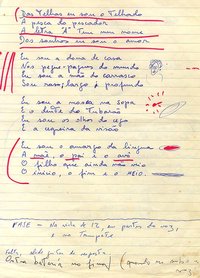 Das Telhas eu sou o Telhado
A pesca do pescador
A letra "A" Tem meu nome
Dos sonhos eu sou o amor
Eu sou a dona de casa
Nos pegue-pagues do mundo
Eu sou a mão do carrasco
Sou raso, largo e profundo
Eu sou a mosca na sopa
E o dente do Tubarão
Eu sou os olhos do cego
E a cegueira da visão
Eu sou o amargo da língua
A mãe, o pai e o avô
O filho que ainda não veio
O início, o fim e o MEIO.
FASE - Na
e no Trompete
Outra bateria no final